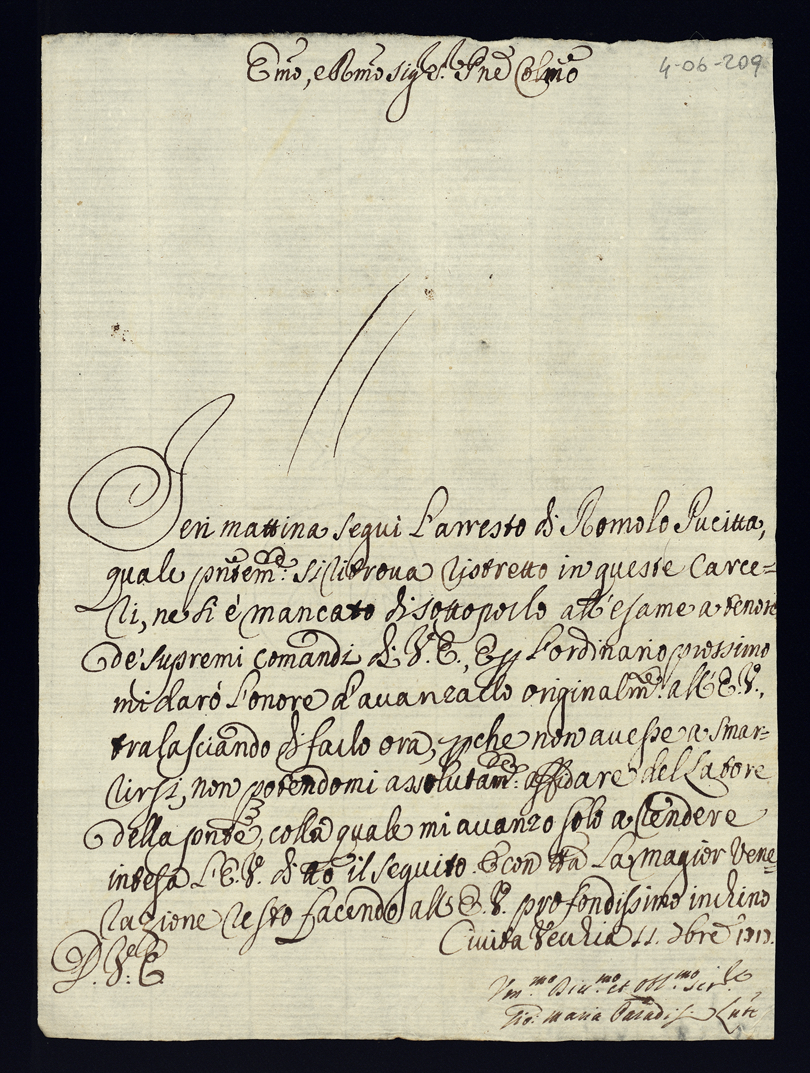 Emo, e Rmo Sig.r Pne Colmo
4-06-209
Ieri mattina seguì l'arresto di Romolo Pucitta,
quale pntem.te si ritrova ristretto in queste Carce=
ri, ne si è mancato di sottoporlo all'esame a tenore
de' supremi comandi di V.E., E p l'ordinario prossimo
mi darò l'onore d'avanzarlo originalm.te all'E.V.,
tralasciando di farlo ora, pche non avesse a smar=
rirsi, non potendomi assolutam.te affidare del Latore
della pnte, colla quale mi avanzo solo a rendere
intesa l'E.V. di tto il seguito. E con tta la magior vene=
razione resto facendo all'E.V. profondissimo inchino
Civita Vecchia 11. Xbre
D. V.E.
Um.mo Div.mo et Obl.mo Ser.re
Gio: Maria Paradisi